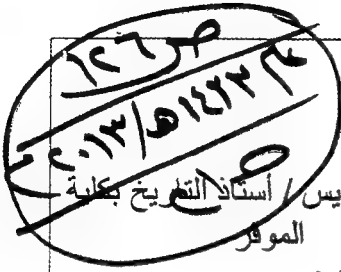 ص ٦٢٦
م ١٤٢٣هـ/٢٠١٣م
ص
يس / أستاذ التاريخ بكلية
الموقر